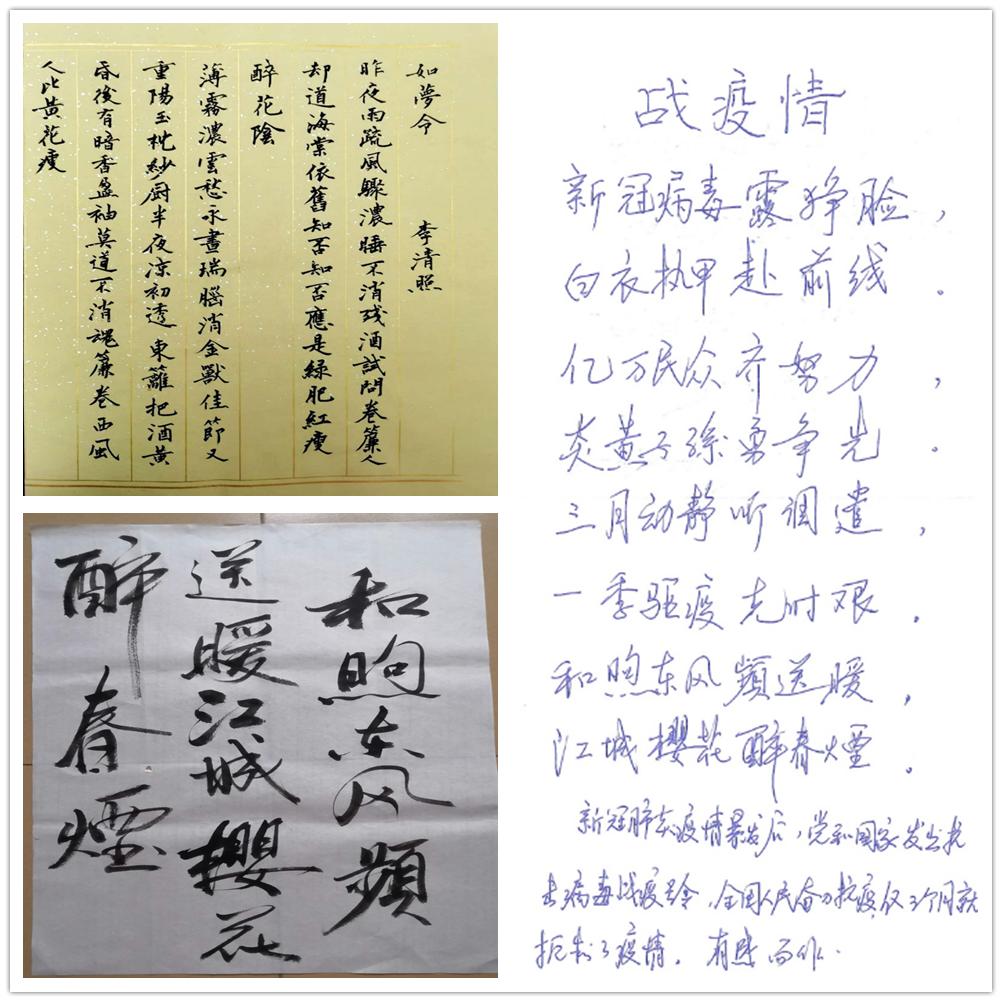 如夢令 李清照
昨夜雨疏風驟濃睡不消残酒試問卷簾人
却道海棠依舊知否知否應是綠肥紅瘦
醉花陰
薄霧濃雲愁永晝瑞腦消金獸佳節又
重陽玉枕紗厨半夜凉初透東籬把酒黄
昏後有暗香盈袖莫道不消魂簾卷西風
人比黄花瘦
和煦东风頻
送暖江城櫻花
醉春煙
战疫情
新冠病毒露狰脸，
白衣执甲赴前线．
亿万民众齐努力，
炎黄子孫勇争光．
三月动静听调遣，
一季驱疫克时艰．
和煦东风頻送暖，
江城櫻花醉春煙．
新冠肺炎疫情暴发后，党和国家发出抗
击病毒战疫号令，全国人民奋力抗疫仅三个月就
扼制了疫情．有感而作．